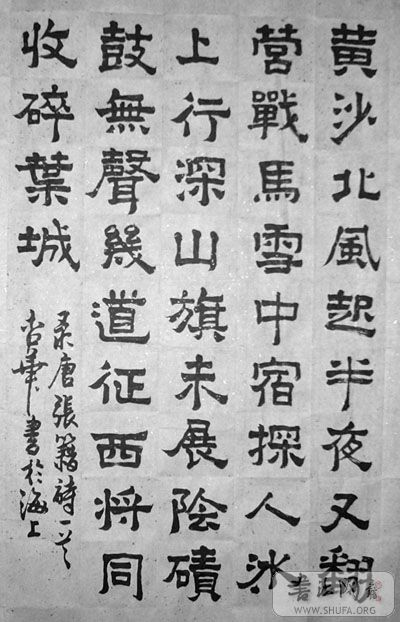 黄沙北風起半夜又翻
營戰馬雪中宿探人冰
上行深山旗未展陰磧
鼓無聲幾道征西將同
收碎葉城
录唐張籍詩一首
書於海上
WWW.SHUFA.ORG